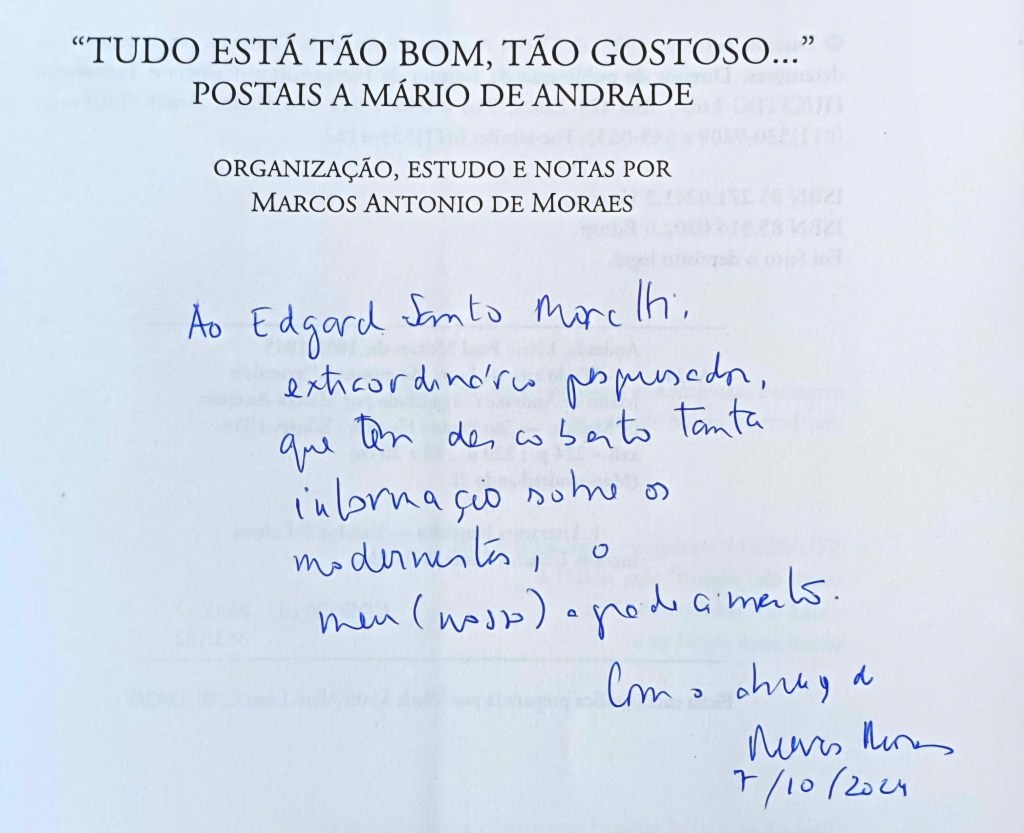 “TUDO ESTÁ TÃO BOM, TÃO GOSTOSO...”
POSTAIS A MÁRIO DE ANDRADE
ORGANIZAÇÃO, ESTUDO E NOTAS POR
MARCOS ANTONIO DE MORAES
Ao Edgard Santo Moretti,
extraordinário pesquisador,
que tem descoberto tanta
informação sobre os
modernistas, o
meu (nosso) agradecimento.
Com o abraço de
Marcos Moraes
7/10/2024